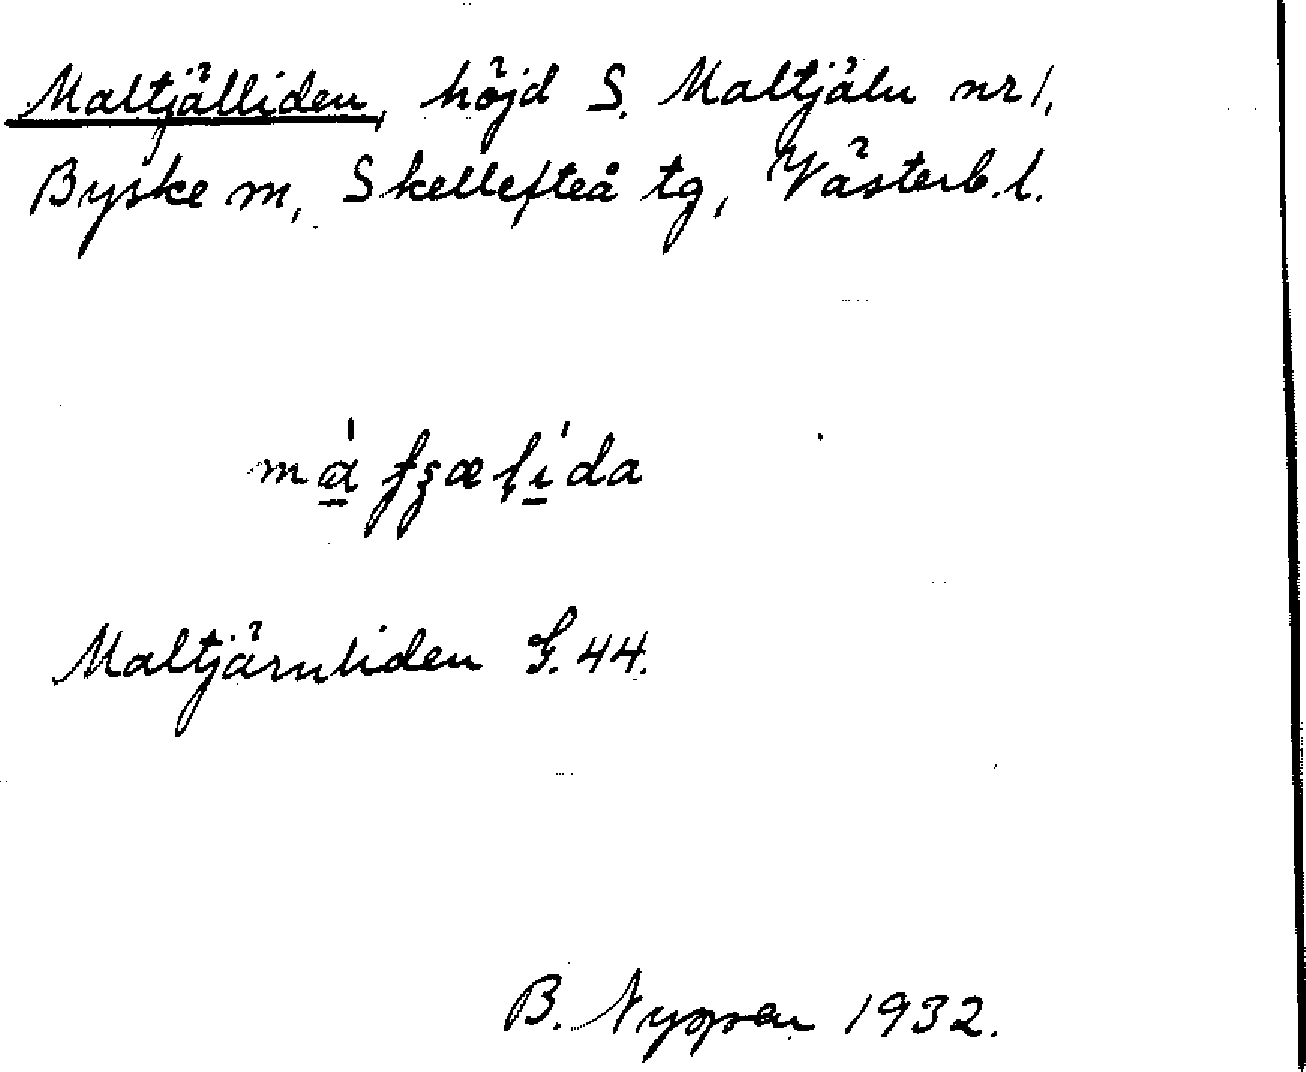 Maltjälliden, höjd S. Maltjäln nr 1,
Byske m, Skellefteå tg, Västerb. l.
Maltjärnliden G. 44.
B. 1932.